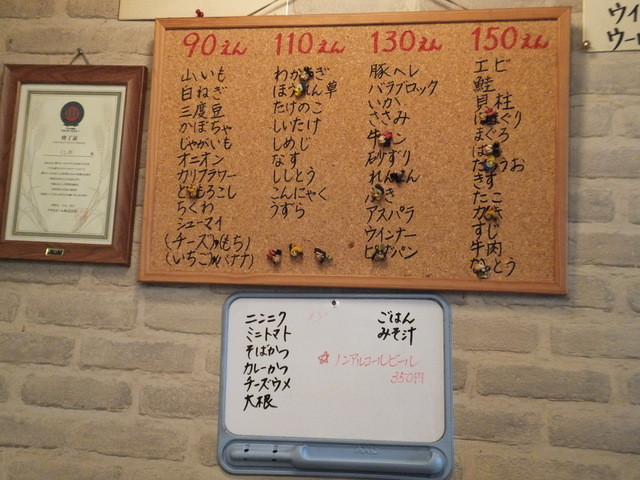 90えん
山いも
白ねぎ
三度豆
かぼちゃ
じゃがいも
オニオン
カリフラワー
ともろこし
ちくわ
シューマイ
(チーズ)(もち)
(いちご)(バナナ)
110えん
ほうれん草
たけのこ
しいたけ
しめじ
なす
ししとう
こんにゃく
うずら
130えん
豚ヘレ
バラブロック
いか
ささみ
牛タン
れんこん
アスパラ
ウインナー
150えん
エビ
鮭
貝柱
はまぐり
まぐろ
きす
たこ
カキ
すじ
牛肉
ウイ
ウー
修了証
ニンニク
ミニトマト
そばかつ
カレーかつ
チーズウメ
大根
ごはん
みそ汁
☆ノンアルコールビール
350円